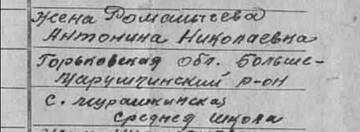 Жена Ромалычева
Антонина Николаевна
Горьковская обл. Больше-
Марушкинский р-он
с. Мурашкинская
Средняя школа